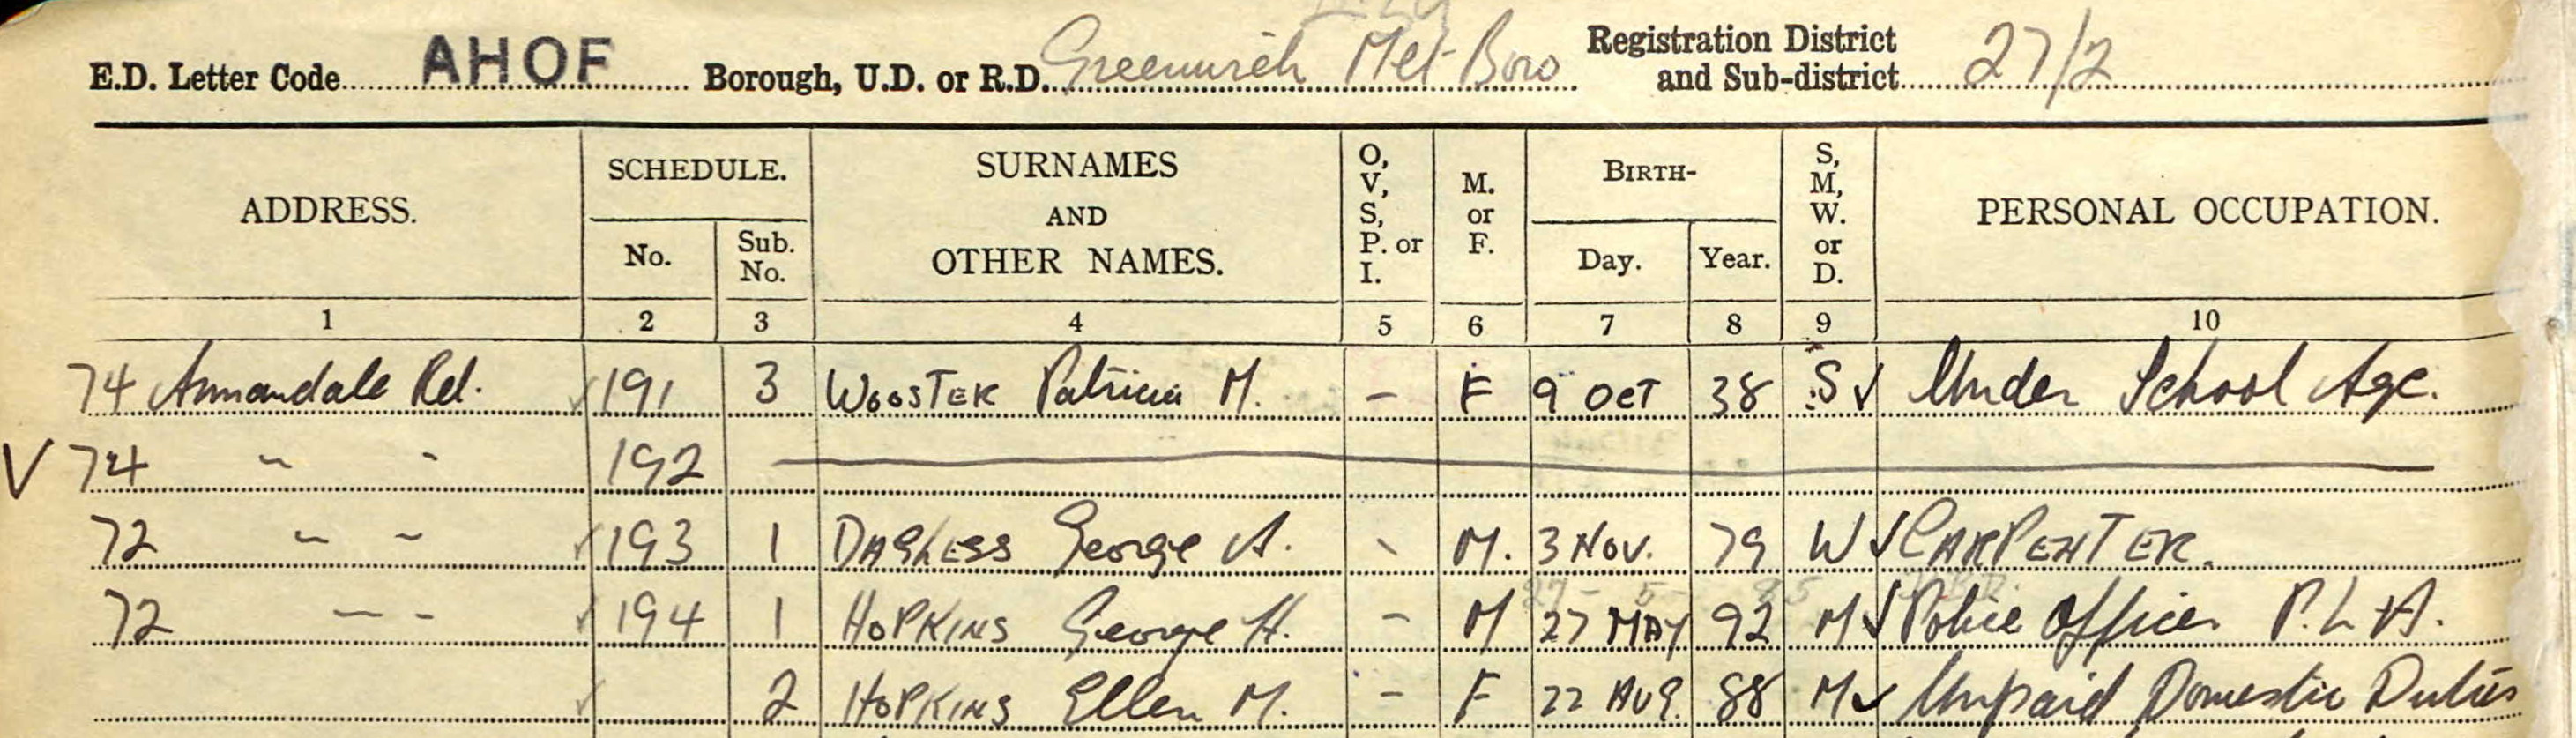 E.D. Letter Code AHOF Borough, U.D. or R.D. Greenwich Met Boro Registration District and Sub-district 27/2
ADDRESS. SCHEDULE. No. Sub. No. SURNAMES AND OTHER NAMES. O, V, S, P. or I. M. or F. BIRTH- Day. Year. S, M, W. or D. PERSONAL OCCUPATION.
1 2 3 4 5 6 7 8 9 10
74 Annandale Rd. 191 3 WOOSTER Patricia M. - F 9 OCT 38 S ✓ Under School Age.
V 74 " " 192
72 " " 193 1 George A. - M. 3 NOV. 79 W ✓ CARPENTER.
72 " " 194 1 HOPKINS George H. - M 27 MAY 92 M ✓ Police Officer P.L.A.
2 HOPKINS Ellen M. - F 22 AUG. 88 M ✓ Unpaid Domestic Duties